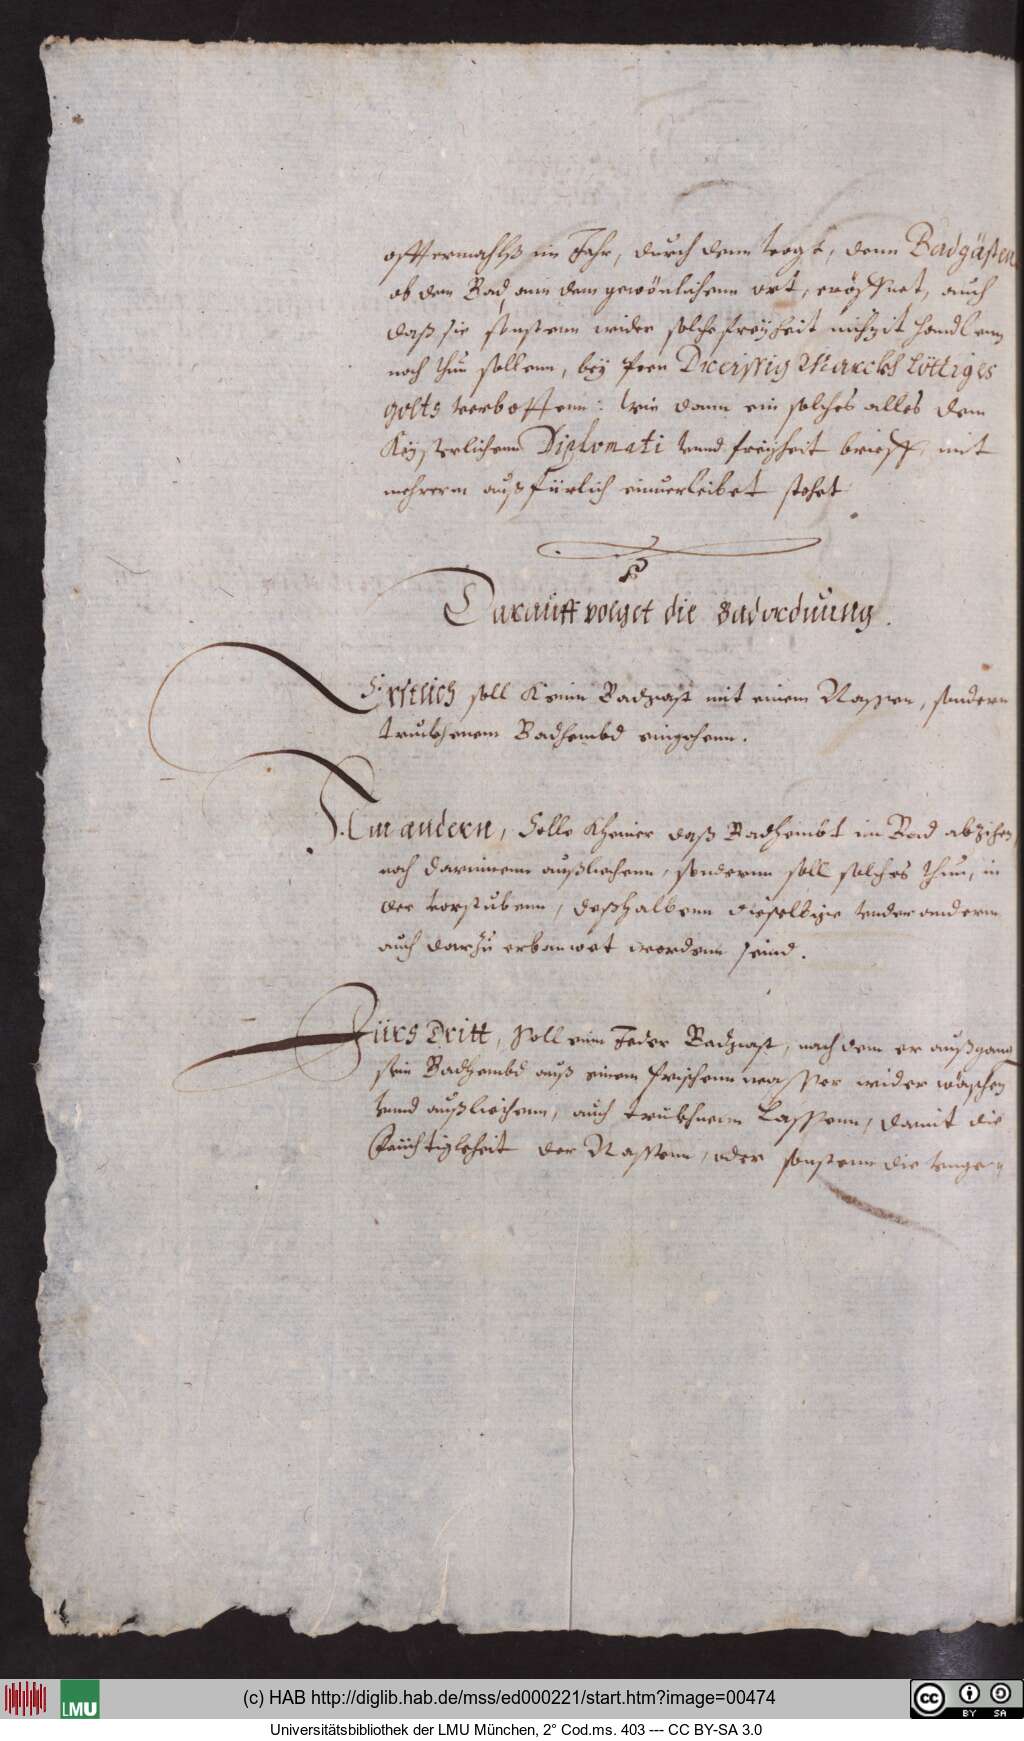 offtermahlß im Jahr, durch denn vogt, denn Badgästen
ob dem Bad ann dem gewönlichenn ort, eröffnet, auch
daß sie sonstenn wider solche freyheit nichzit handlenn
noch thun sollenn, bey peen Dreissig Marckh Löttiges
golts verbottenn: wie dann ein solches alles dem
Keyserlichenn Diplomati vnnd freyheit brieff, mit
mehrerm außfürlich einuerleibet stehet
Darauff volget die Badordnung.
Erstlich soll Keinn Badgast mit einem Nassen, sondern
truckhenem Badhembd eingehenn.
Zum andern, Solle Kheiner daß Badhembt im Bad abziehen
noch darinnenn außwschenn, sondernn soll solches thun, in
der vorstubenn, deßhalbenn dieselbige vnder anderm
auch darzu erbauwet wordenn seind.
Fürs Dritt, Soll einn Jeder Badgast, nach dem er außgang
sein Badhembd auß einem frischenn wasser wider wäschen
vnnd außziehenn, auch truckhnenn Lassenn, damit die
feüchtigkheit der Nassenn, oder sonstenn die
(c) HAB http://diglib.hab.de/mss/ed000221/start.htm?image=00474
LMU
cc BY SA
Universitätsbibliothek der LMU München, 2° Cod.ms. 403 --- CC BY-SA 3.0